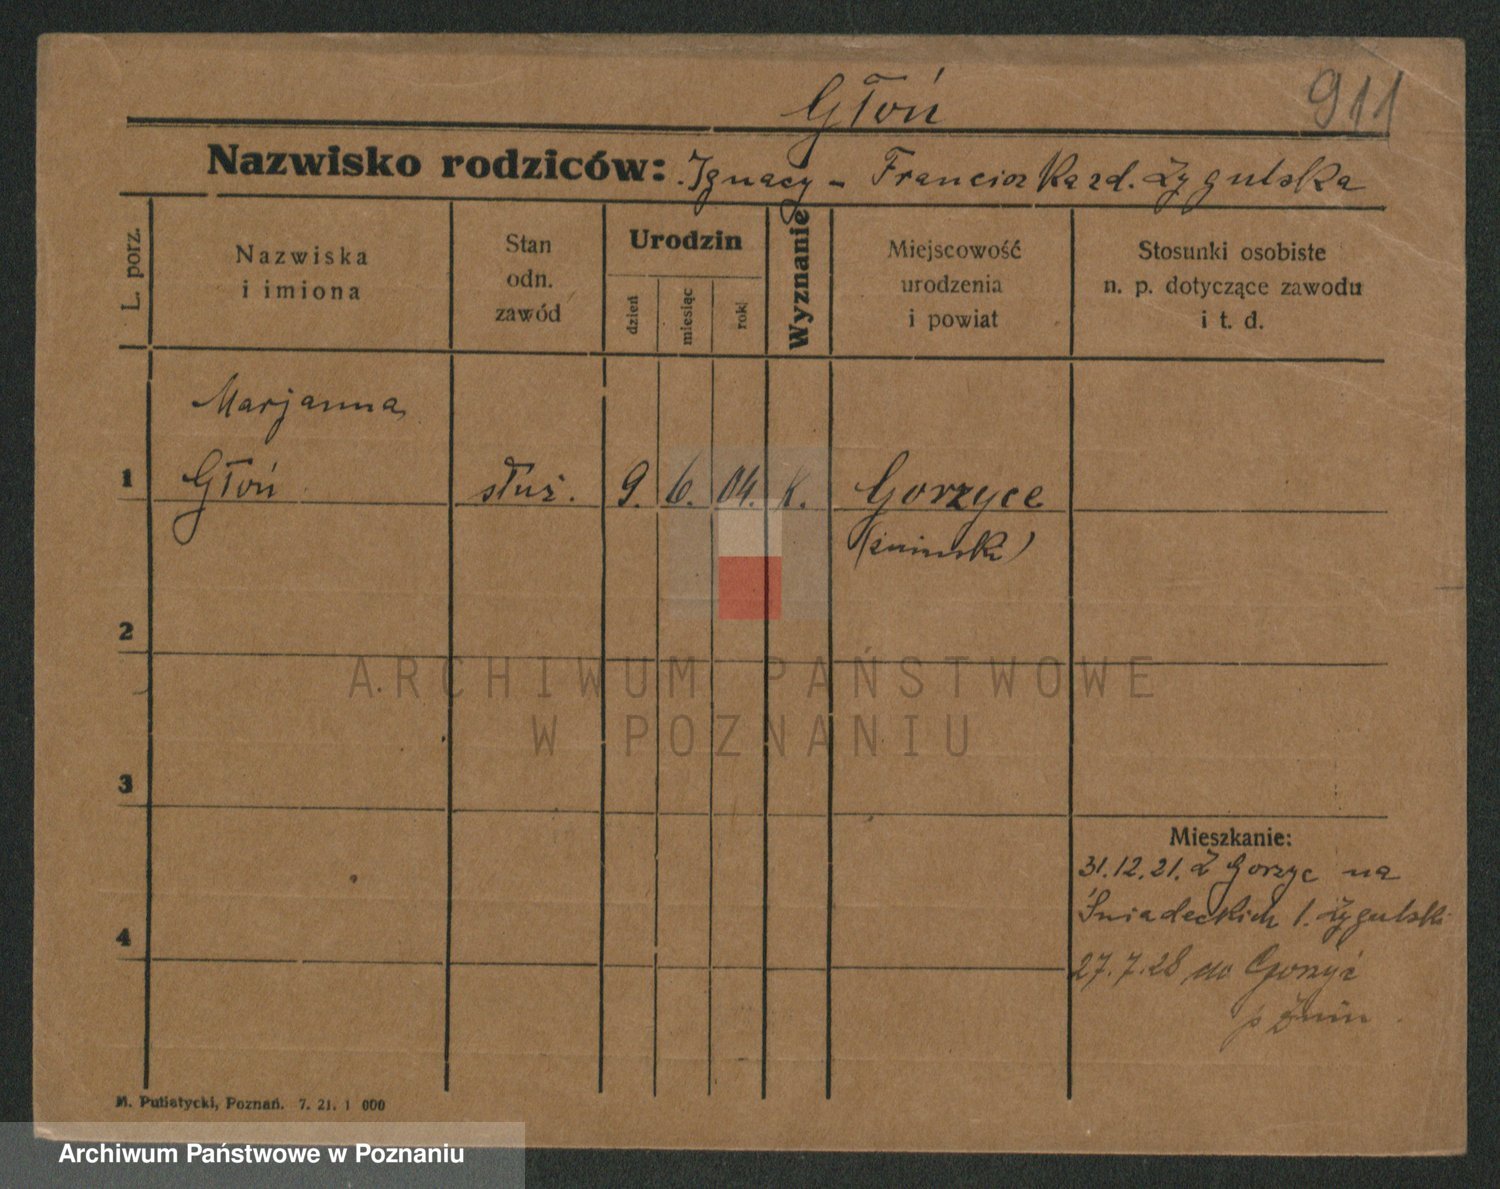 Głoń
911
Nazwisko rodziców: Ignacy - Franciszka zd. Żygulska
L. porz.
Nazwiska
i imiona
Stan
odn.
zawód
Urodzin
dzień
miesiąc
rok
Wyznanie
Miejscowość
urodzenia
i powiat
Stosunki osobiste
n. p. dotyczące zawodu
i t. d.
Marjanna
1 Głoń służ. 9. 6. 04. K. Gorzyce
(żniński)
2
ARCHIWUM PAŃSTWOWE
W POZNANIU
3
Mieszkanie:
31.12.21. Z Gorzyc na
Śniadeckich 1. Żygulski
4
27.7.28 do Gorzyć
p Żnin
M. Putiatycki, Poznań. 7. 21. 1 000
Archiwum Państwowe w Poznaniu